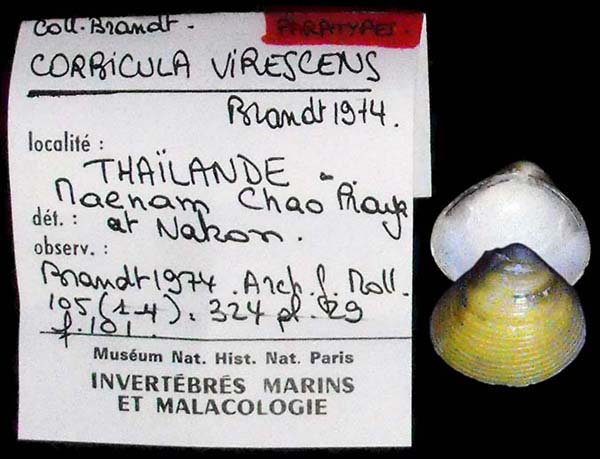 Coll. Brandt. PARATYPES
CORBICULA VIRESCENS
Brandt 1974.
localité :
THAÏLANDE -
Maenam Chao Praya
dét. : at Nakon.
observ. :
Brandt 1974. Arch. f. Moll.
105 (1-4). 324 pl. 29
f. 101
Muséum Nat. Hist. Nat. Paris
INVERTÉBRÉS MARINS
ET MALACOLOGIE